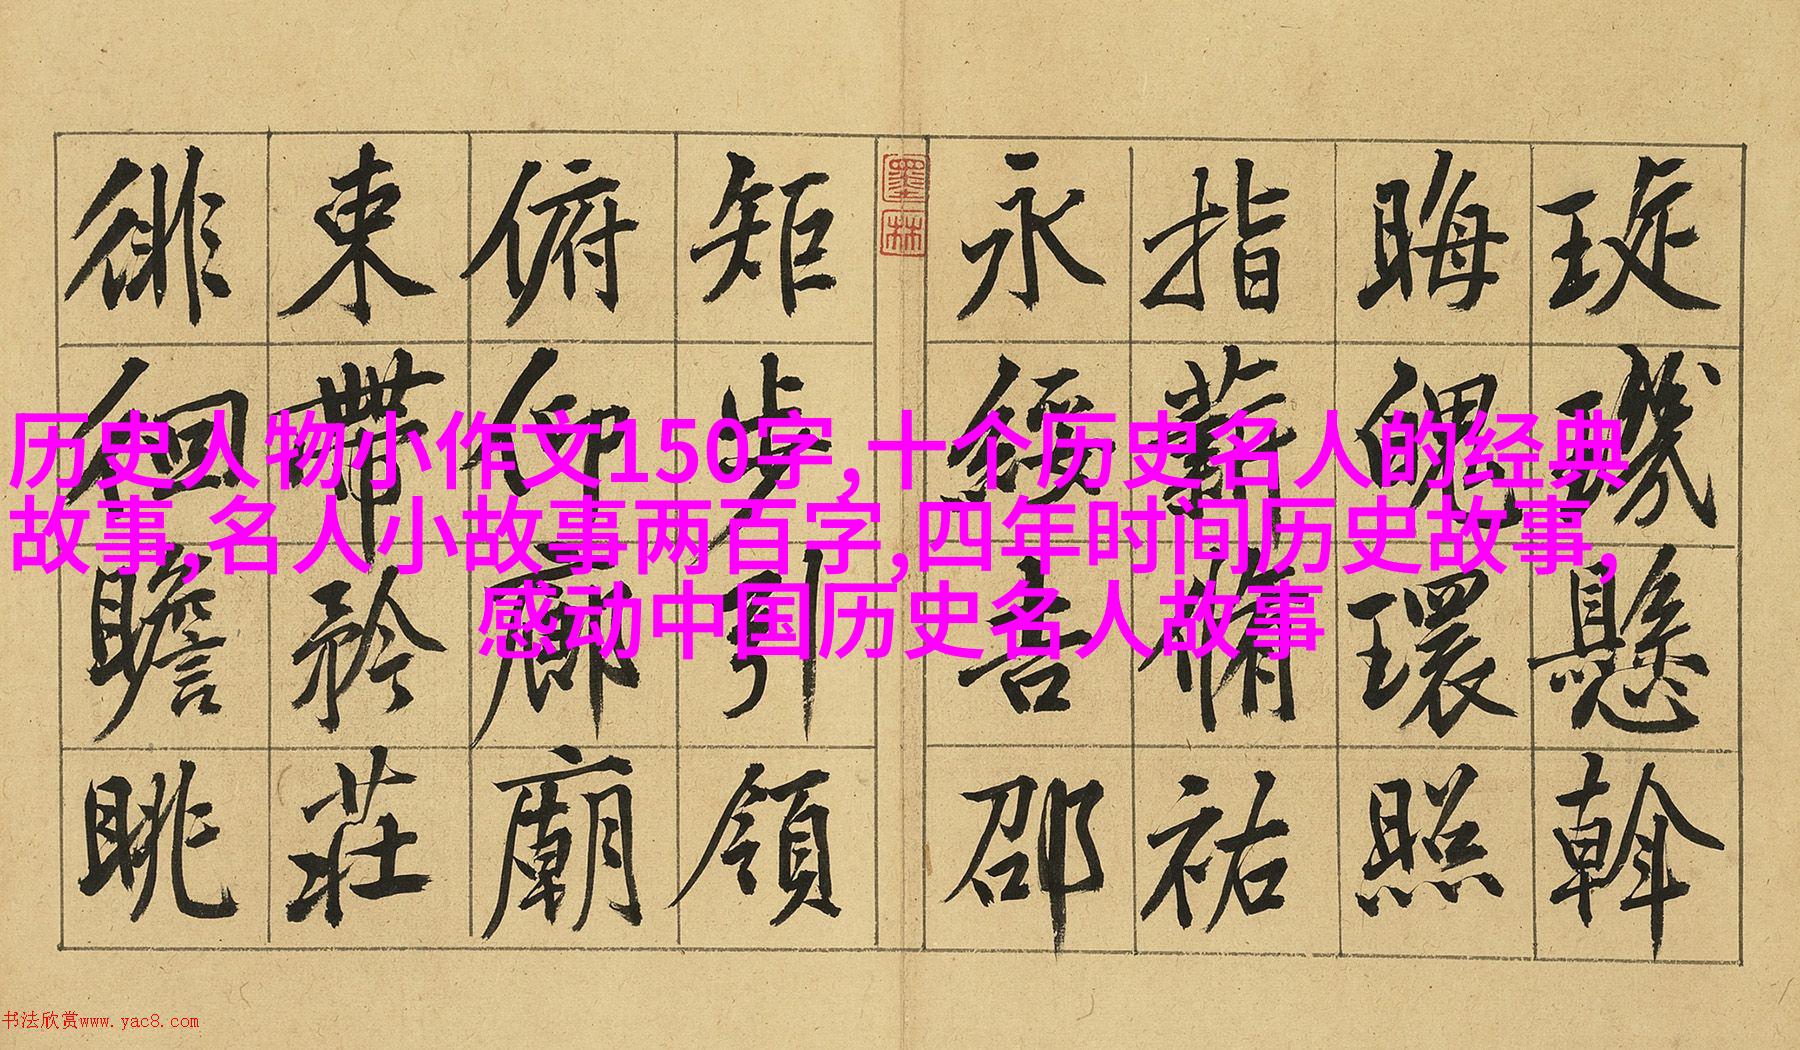 琁璣懸斡
晦魄環照
指薪脩祐
永綏吉邵
墨林
矩步引領
俯仰廊廟
束帶矜莊
徘徊瞻眺
历史人物小作文150字,十个历史名人的经典
故事,名人小故事两百字,四年时间历史故事,
感动中国历史名人故事
书法欣赏www.yac8.com